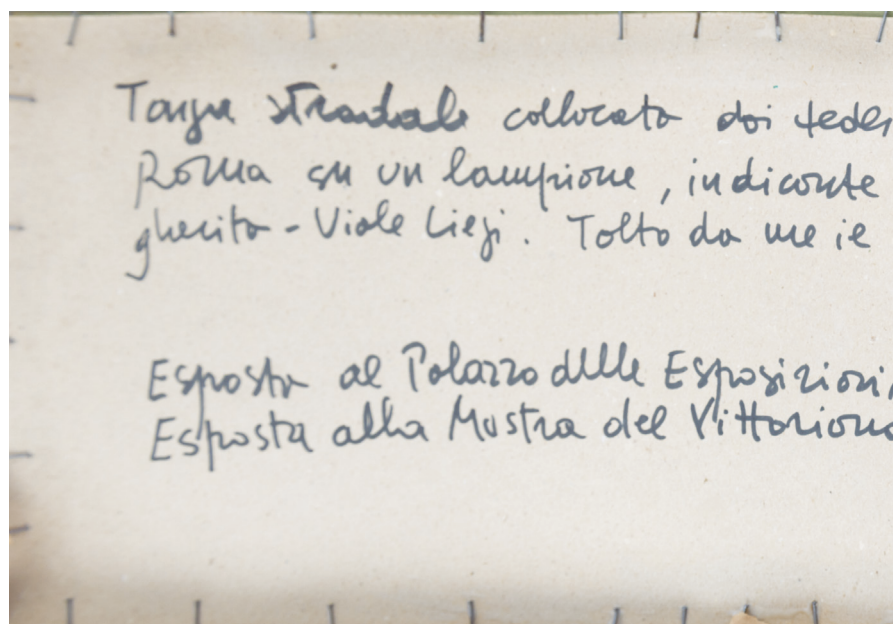 Targa stradale collocata dai tedes
Roma su un lampione, indicante
gherita - Viale Liegi. Tolta da me ie
Esposta al Palazzo delle Esposizioni,
Esposta alla Mostra del Vittoriano